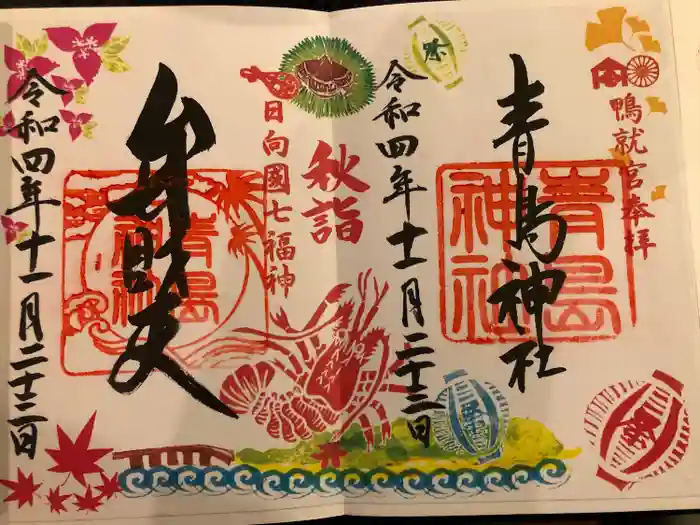 鴨就宮奉拝
青島神社
青島
神社
令和四年十一月二十三日
祭
祭
秋詣
日向國七福神
弁財天
青島
神社
令和四年十一月二十三日